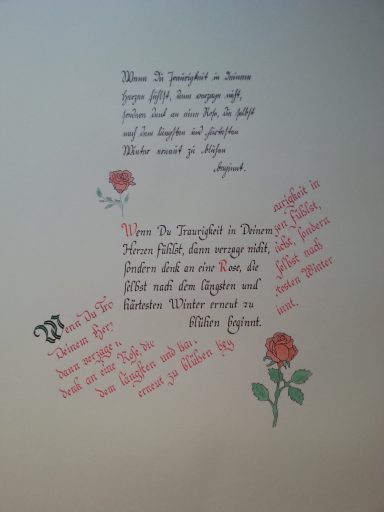 Wenn Du Traurigkeit in Deinem
Herzen fühlst, dann verzage nicht,
sondern denk an eine Rose, die selbst
nach dem längsten und härtesten
Winter erneut zu blühen
beginnt.
Wenn Du Traurigkeit in Deinem
Herzen fühlst, dann verzage nicht,
sondern denk an eine Rose, die
selbst nach dem längsten und
härtesten Winter erneut zu
blühen beginnt.
urigkeit in
zen fühlst,
icht, sondern
selbst nach
testen Winter
innt.
Wenn Du Tra
Deinem Herz
dann verzage n
denk an eine Rose, die
dem längsten und här
erneut zu blühen beg